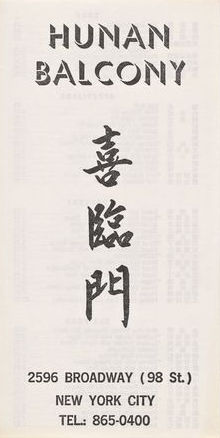 HUNAN
BALCONY
喜
臨
門
2596 BROADWAY (98 St.)
NEW YORK CITY
TEL.: 865-0400